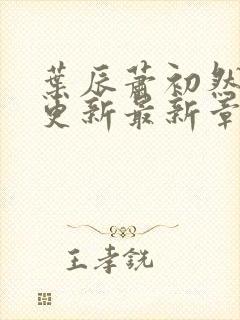 葉辰蕭初然
更新最新章
王孝銳